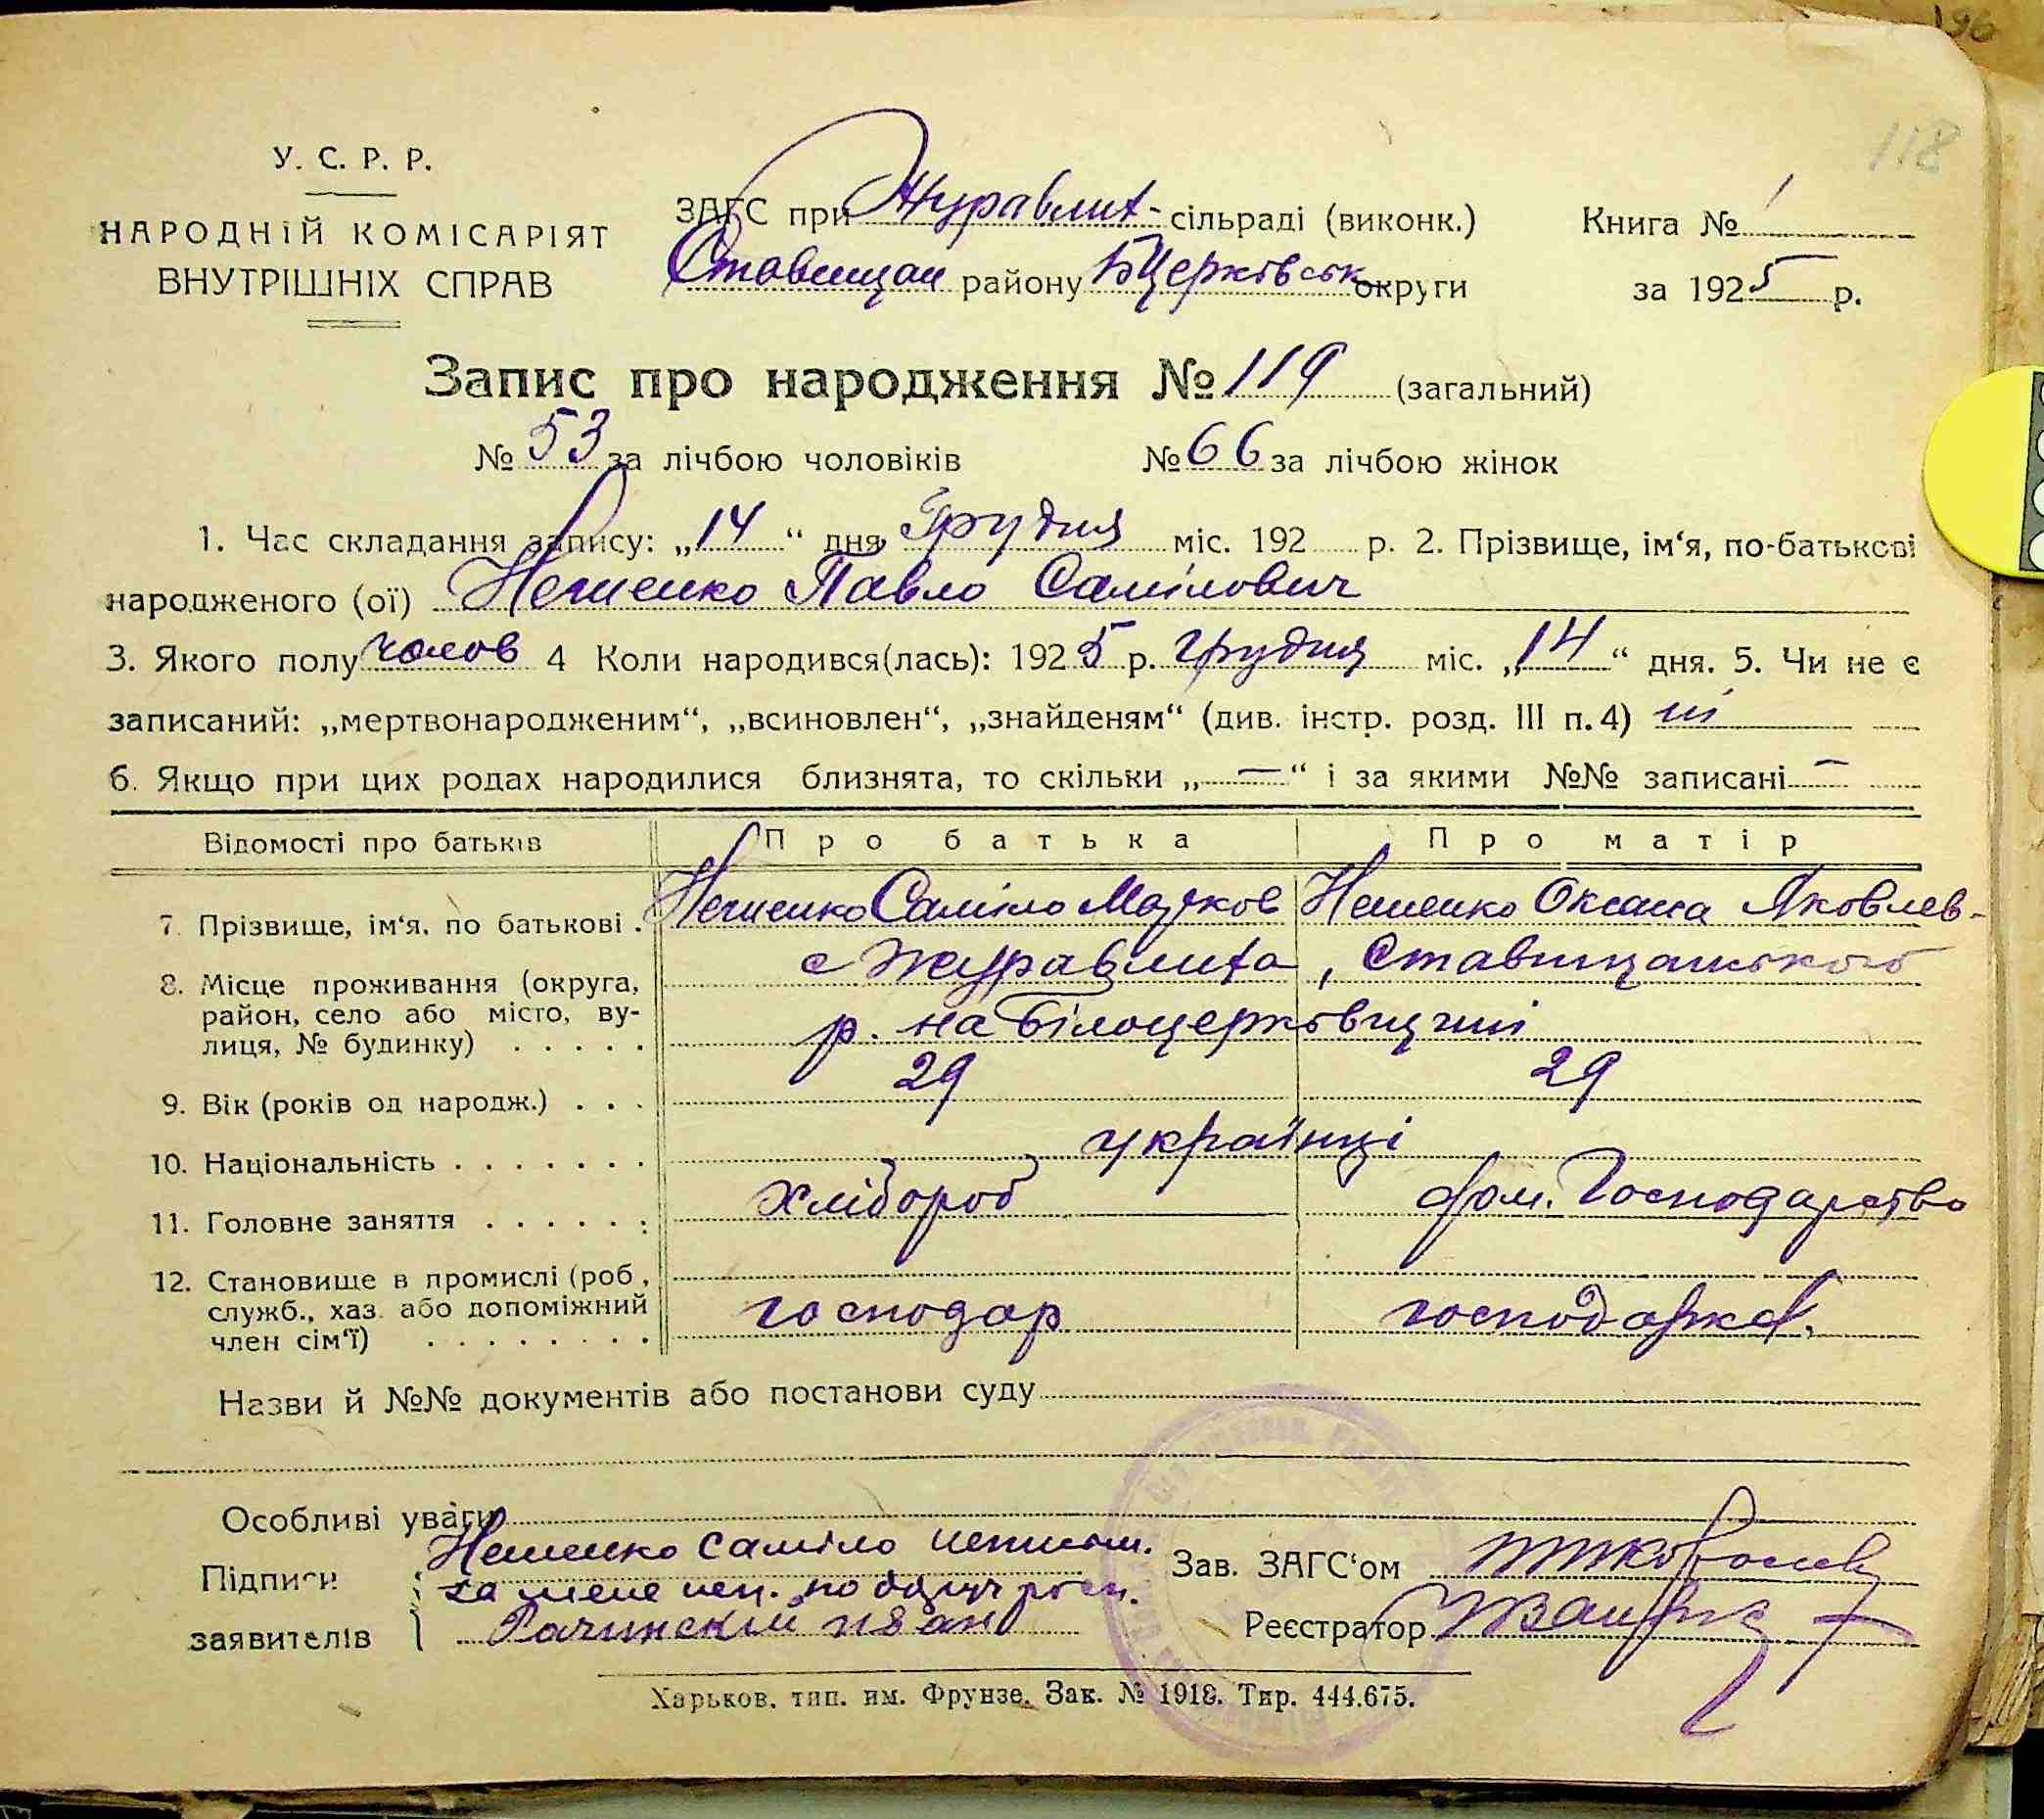 196
118
У. С. Р. Р.
НАРОДНІЙ КОМІСАРІЯТ
ВНУТРІШНІХ СПРАВ
ЗАГС при Журавлит- сільраді (виконк.) Книга № 1
Ставищан району БЦерківськ округи за 1925 р.
Запис про народження № 119 (загальний)
№ 53 за лічбою чоловіків № 66 за лічбою жінок
1. Час складання запису: „14“ дня Грудня міс. 192 р. 2. Прізвище, ім‘я, по-батькові
народженого (ої) Нешенко Павло Самілович
3. Якого полу чолов 4 Коли народився(лась): 1925 р. грудня міс. „14“ дня. 5. Чи не є
записаний: „мертвонародженим“, „всиновлен“, „знайденям“ (див. інстр. розд. III п. 4) ні
6. Якщо при цих родах народилися близнята, то скільки „—“ і за якими №№ записані —
Відомості про батьків Про батька Про матір
7. Прізвище, ім‘я, по батькові . Нешенко Саміло Марков Нешенко Оксана Яковлев-
8. Місце проживання (округа, с Журавлиха, Ставищанського
район, село або місто, ву-
лиця, № будинку) . . . . . р. на Білоцерківщині
9. Вік (років од народж.) . . . 29 29
10. Національність . . . . . . . українці
11. Головне заняття . . . . . . хлібороб дом. Господарство
12. Становище в промислі (роб,
служб., хаз. або допоміжний господар господарка.
член сім‘ї) . . . . . . . .
Назви й №№ документів або постанови суду
Особливі уваги
Підписи Нешенко Саміло неписьм. Зав. ЗАГС‘ом
за мене неп.
заявителів Рачинский иван Реєстратор
Харьков, тип. им. Фрунзе. Зак. № 1918. Тир. 444.675.